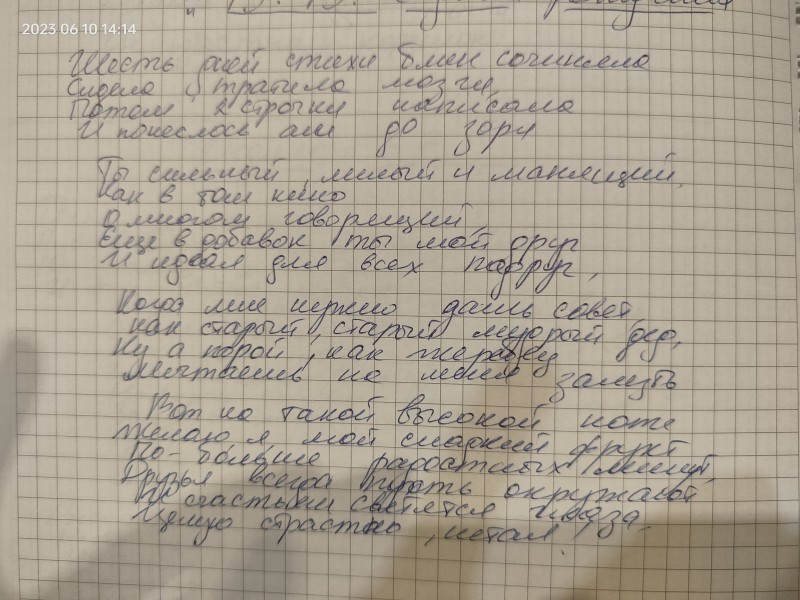 2023 06 10 14:14
Шесть дней стихи блин сочиняла
Сидела, тратила мозги,
Потом 2 строчки написала
И понеслось аш до зори
Ты сильный, милый и манящий,
Как в том кино
о многом говорящий,
Ещё в добавок ты мой друг
И идеал для всех подруг,
Когда мне нужно дашь совет
как старый, старый мудрый дед,
Ну а порой, как жеребец
Мечтаешь на меня залезть
Вот на такой высокой ноте
Желаю я мой сладкий фрукт
По-больше радостных минут,
Друзья всегда пусть окружают
счастьем светятся глаза,
Целую страстно,